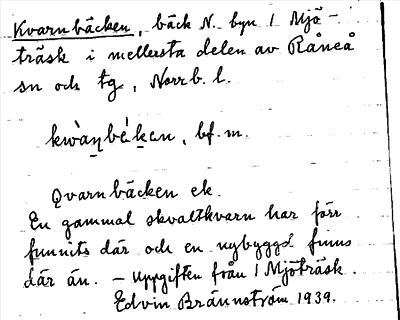 Kvarnbäcken, bäck N. byn 1 Mjö-
träsk i mellersta delen av Råneå
sn och tg, Norrb. l.
kwàṉbèḵen, bf. m.
Qvarnbäcken ek.
En gammal skvaltkvarn har förr
funnits där och en nybyggd finns
där än. – Uppgiften från 1 Mjöträsk.
Edvin Brännström 1939.